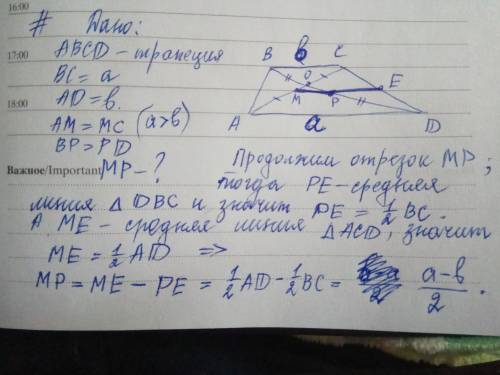 16:00
# Дано:
17:00
ABCD - трапеция
BC = a
18:00
AD = b.
AM = MC (a>b)
BP = PD
Важное/Important
MP - ?
B b C
O
E
M P
A a D
Продолжим отрезок MP;
тогда PE - средняя
линия △ DBC и значит PE = 1/2 BC.
А ME - средняя линия △ACD, значит
ME = 1/2 AD =>
MP = ME - PE = 1/2 AD - 1/2 BC = a-b/2.